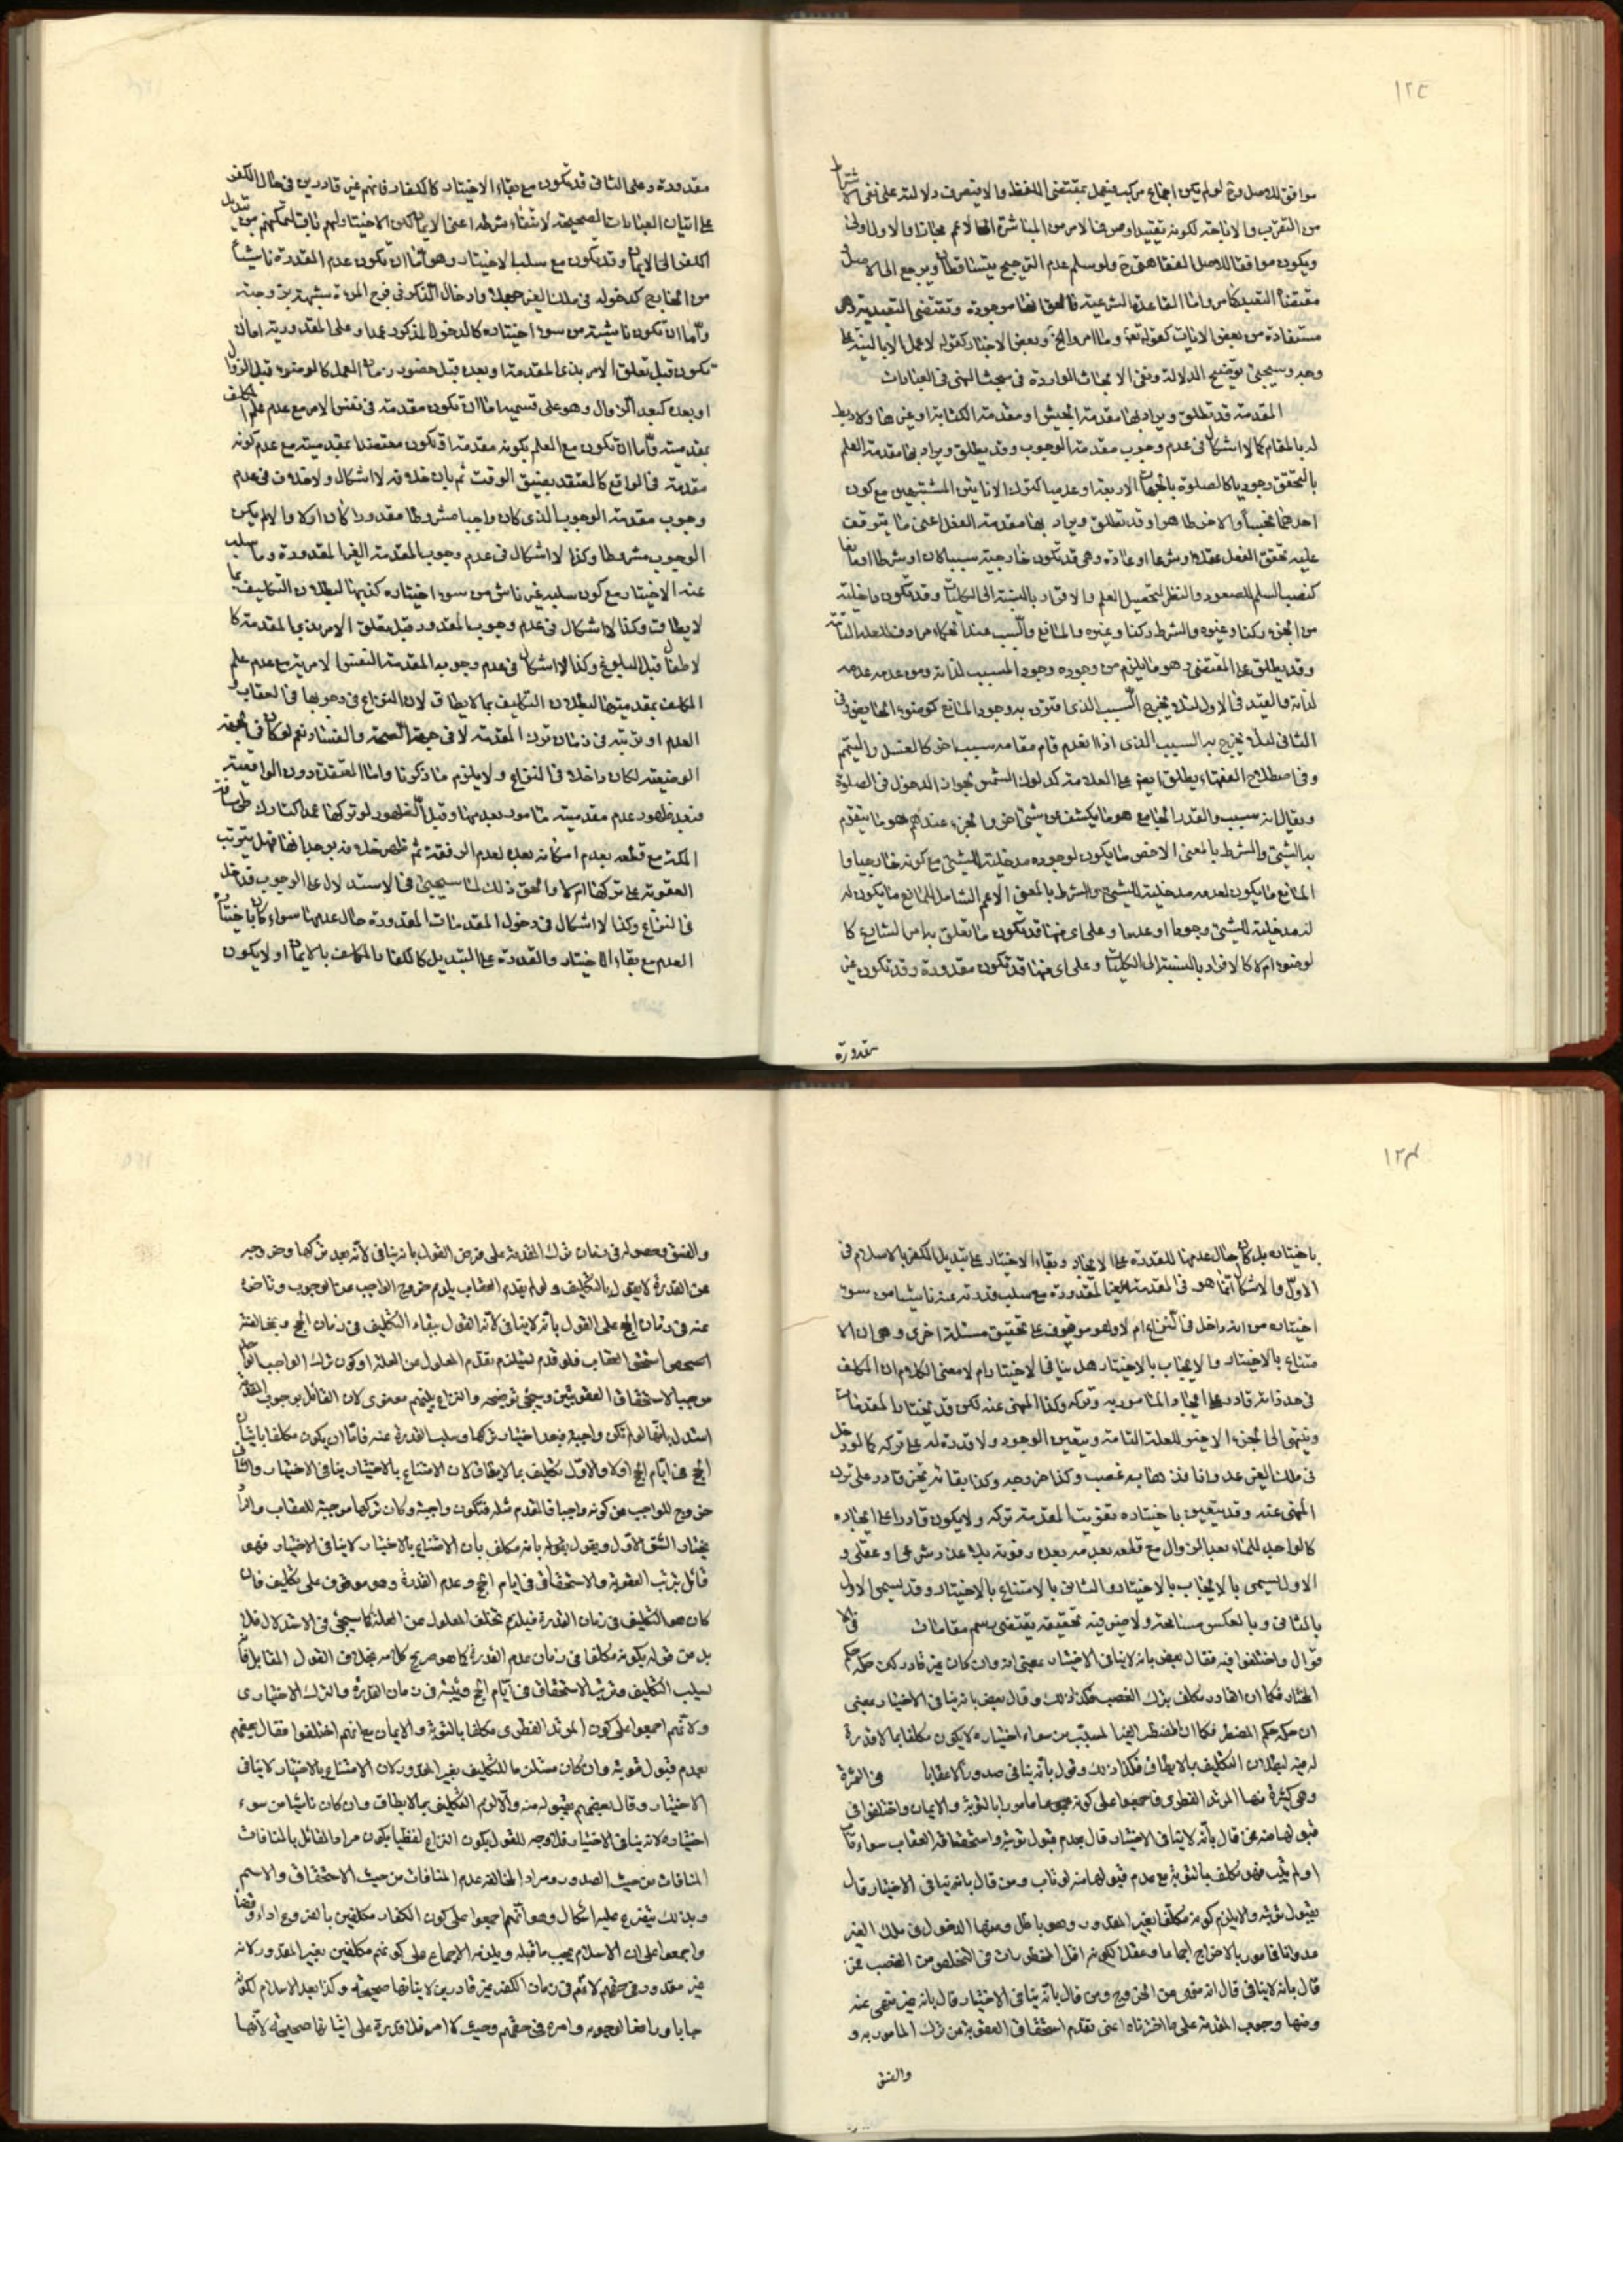 ١٢٤
موافق للاصل وتم لو لم يكن اجماع مركب فيعمل بمقتضى اللفظ والا فيصرف دلالته على نفى الاشتراط
من التقرب والاباحة لكونه تقييدا وصرفنا الامر من المباشرة الى الاعم مجازا والاول اولى
ويكون موافقا للاصل الفقاهتى ولو سلم عدم الترجيح يتساقطان ويرجع الى الاصل
مقتضاه التعبد كما مر واما القاعدة الشرعية فالحق انها موجودة وتقتضى التعبدية وهى
مستفادة من بعض الايات كقوله تعالى وما امروا الخ وبعض الاخبار كقوله لا عمل الا بالنية على
وجه وسيجيئ توضيح الدلالة ونفى الابحاث الواردة فى مبحث النهى فى العبادات
المقدمة قد تطلق ويراد بها مقدمة الجيش او مقدمة الكتابة او غيرها ولا ربط
له بالمقام كما لا اشكال فى عدم وجوب مقدمة الوجوب وقد يطلق ويراد بها مقدمة العلم
بالتحقق وجوديا كالصلوة بالجهات الاربعة او عدميا كترك الانائين المشتبهين مع كون
احدهما نجسا والاخر طاهرا وقد تطلق ويراد بها مقدمة الفعل اعنى ما يتوقف
عليه تحقق الفعل عقلا او شرعا او عادة وهى قد تكون خارجية سببا كان او شرطا او مانعا
كنصب السلم للصعود والنظر لتحصيل العلم والافراد بالنسبة الى الكليات وقد تكون داخلية
من الجزء ركنا وغيره والشرط ركنا وغيره والمانع والسبب عند الحكماء مرادف للعلة التامة
وقد يطلق على المقتضى وهو ما يلزم من وجوده وجود المسبب لذاته ومن عدمه عدمه
لذاته والقيد فى الاول لئلا يخرج السبب الذى اقترن بوجود المانع كوضوء الحايض وفى
الثانى لئلا يخرج به السبب الذى اذا انعدم قام مقامه سبب اخر كالغسل والتيمم
وفى اصطلاح الفقهاء يطلق ايضا على العلامة كدلوك الشمس لجواز الدخول فى الصلوة
ويقال انه سبب والقدر الجامع هو ما يكشف عن شيئ اخر والجزء عندهم هو ما يتقوم
به الشيئ والشرط بالمعنى الاخص ما يكون لوجوده مدخلية للشيئ مع كونه خارجيا و
المانع ما يكون لعدمه مدخلية للشيئ والشرط بالمعنى الاعم الشامل للمانع ما يكون له
له مدخلية للشيئ وجودا او عدما وعلى اى منها قد يكون ما تعلق به امر الشارع كا
لوضوء ام لا كالافراد بالنسبة الى الكليات وعلى اى منها قد تكون مقدورة وقد تكون غير
مقدورة
مقدورة وعلى الثانى قد تكون مع بقاء الاختيار كالكفار فانهم غير قادرين فى حال الكفر
على اتيان العبادات الصحيحة لانتفاء شرطه اعنى الايمان لكن الاختيار لهم ثابت لتمكنهم من تبديل
الكفر الى الايمان وقد يكون مع سلب الاختيار وهو اما ان تكون عدم القدرة ناشيئا
من الخارج كدخوله فى ملك الغير جهلا وادخال الذكر فى فرج المرءة بشبهة زوجية
واما ان تكون ناشية من سوء اختياره كالدخول المذكور عمدا وعلى المقدورية اما ان
تكون قبل تعلق الامر بذى المقدمة او بعده قبل حضور زمان العمل كالوضوء قبل الزوال
او بعده كبعد الزوال وهو على قسمين اما ان تكون مقدمة فى نفس الامر مع عدم علم المكلف
بمقدميته واما ان تكون مع العلم بكونه مقدمة او تكون معتقدا بمقدميته مع عدم كونه
مقدمة فى الواقع كالمعتقد بضيق الوقت ثم بان خلافه لا اشكال ولا خلاف فى عدم
وجوب مقدمة الوجوب الذى كان واجبا مشروطا مقدورا كان اولا والا لم يكن
الوجوب مشروطا وكذا لا اشكال فى عدم وجوب المقدمة الغير المقدورة وما سلب
عنه الاختيار مع كون سلبه غير ناش من سوء اختياره كذيها لبطلان التكليف بما
لا يطاق وكذا لا اشكال فى عدم وجوب المقدور قبل تعلق الامر بذى المقدمة كا
لاطفال قبل البلوغ وكذا لا اشكال فى عدم وجوب المقدمة النفس الامرية مع عدم علم
المكلف بمقدميتها لبطلان التكليف بما لا يطاق لان النزاع فى وجوبها فى العقاب
العدم او ترتبه فى زمان ترك المقدمة لا فى جهة الصحة والفساد نعم لو كان فى الجهة
الوضعية لكان داخلا فى النزاع ولا يلزم ما ذكرنا واما المعتقدة دون الواقعية
فبعد ظهور عدم مقدميته مامور بعدمها وقبل الظهور لو تركها عمدا كتارك طى مسافة
المكة مع قطعه بعدم امكانه بعده لعدم الرفقة ثم ظهر خلافه بوجدانها فهل يترتب
العقوبة على تركها ام لا والحق ذلك لما سيجيئ فى الاستدلال على الوجوب فدخل
فى النزاع وكذا لا اشكال فى دخول المقدمات المقدورة حال عدمها سواء كان باختيار
العدم مع بقاء الاختيار والقدرة على التبديل كالكفار المكلف بالايمان او لا يكون
باختياره بل كان حال عدمها للقدرة على الايجاد وبقاء الاختيار على تبديل الكفر بالاسلام فى
الاول والاشكال انما هو فى المقدمة الغير المقدورة مع سلب قدرته عنه ناشيئا من سوء
اختياره من انه داخل فى النزاع ام لا وهو موقوف على تحقيق مسئلة اخرى وهى ان الا
متناع بالاختيار والايجاب بالاختيار هل ينافى الاختيار ام لا معنى الكلام ان المكلف
فى حد ذاته قادر على ايجاد المامور به وتركه وكذا المنهى عنه لكن قد يختار المقدمات
وينتهى الى الجزء الاخير للعلة التامة ويتعين الوجود ولا قدرة له على تركه كالمودخل
فى ملك الغير عدوانا فذهابه غصب وكذا خروجه وكذا بقائه نحن قادر على ترك
المنهى عنه وقد يتعين باختياره تفويت المقدمة تركه ولا يكون قادرا على ايجاده
كالواجد للماء بعد الزوال مع قطعه بعدمه بعده وفوته بلا عذر شرعى او عقلى و
الاول يسمى بالايجاب بالاختيار والثانى بالامتناع بالاختيار وقد يسمى الاول
بالثانى وبالعكس مسامحة ولا ضير فيه تحقيقه يقتضى رسم مقامات فى الا
قوال واختلفوا فيه فقال بعض بانه لا ينافى الاختيار بمعنى انه وان كان غير قادر لكن حكمه حكم
المختار فكما ان القادر مكلف بترك الغصب فكذا ذلك وقال بعض بانه ينافى الاختيار بمعنى
ان حكمه حكم المضطر فكما ان المضطر الغير المسبب من سوء اختياره لا يكون مكلفا بما لا قدرة
له فيه لبطلان التكليف بما لا يطاق فكذا ذلك وقول بانه ينافى صدورا لا عقابا فى الثمرة
وهى كثيرة منها المرتد الفطرى فاجمعوا على كونه مامورا بالتوبة والايمان واختلفوا فى
قبولها منه فمن قال بانه لا ينافى الاختيار قال بعدم قبول توبته واستحقاقه العقاب سواء تاب
او لم يتب فهو مكلف بالتوبة مع عدم قبولها منه لو تاب ومن قال بانه ينافى الاختيار قال
بقبول توبته والا يلزم كونه مكلفا بغير المقدور وهو باطل ومنها الدخول فى ملك الغير
عدوانا فامور بالاخراج اجماعا وعقلا لكونه اقل المحظورات فى التخلص من الغصب فمن
قال بانه لا ينافى قال انه منهى من الخروج ومن قال بانه ينافى الاختيار قال بانه غير منهى عنه
ومنها وجوب المقدمة على ما اخترناه اعنى تقدم استحقاق العقوبة من ترك المامور به و
والفسق
والفسق وحصوله فى زمان ترك المقدمة على فرض القول بانه ينافى لانه بعد تركها وخروجه
عن القدرة لا يقول بالتكليف ولو لم يقدم العقاب يلزم خروج الواجب عن الوجوب وتاخره
عنه فى زمان الحج على القول بانه لا ينافى لانه القول ببقاء التكليف فى زمان الحج وبمخالفته
استحق العقاب فلو قدم ليلزم تقدم المعلول عن العلة او كون ترك الواجب الواحد
موجبا لاستحقاق العقوبتين وسيجئ توضيحه والنزاع بينهم معنوى لان القائل بوجوب المقدمة
استدل بانها لو لم تكن واجبة فبعد اختيار تركها وسلب القدرة عنه فاما ان يكون مكلفا باتيان
الحج فى ايام الحج اولا والاول تكليف بما لا يطاق لان الامتناع بالاختيار ينافى الاختيار والثانى
خروج للواجب عن كونه واجبا فالمقدم مثله فتكون واجبة وكان تركها موجبة للعقاب واما
يختار الشق الاول ويقول بقوله بانه مكلف بان الامتناع بالاختيار لا ينافى الاختيار فهو
قائل بترتب العقوبة والاستحقاق فى ايام الحج وعدم القدرة وهو موقوف على تكليف فان
كان هو التكليف فى زمان القدرة فيلزم تخلف المعلول عن العلة كما سيجئ فى الاستدلال فلا
بد من قوله بكونه مكلفا فى زمان عدم القدرة كما هو صريح كلامه بخلاف القول المقابل قائل
بسلب التكليف وترتب الاستحقاق فى ايام الحج ويثبته فى زمان القدرة والترك الاختيارى
ولانهم اجمعوا على كون المرتد الفطرى مكلفا بالتوبة والايمان مع انهم اختلفوا فقال بعضهم
بعدم قبول توبته وان كان مستلزما للتكليف بغير المقدور لان الامتناع بالاختيار لا ينافى
الاختيار وقال بعضهم بقبوله منه والا لزم التكليف بما لا يطاق وان كان ناشيا من سوء
اختياره لانه ينافى الاختيار فلا وجه للقول بكون النزاع لفظيا بكون مراد القائل بالمنافات
المنافات من حيث الصدور ومراد المخالف عدم المنافات من حيث الاستحقاق والاسم
وبذلك يتفرع عليه اشكال وهو انهم اجمعوا على كون الكفار مكلفين بالفروع اداء وقضاء
واجمعوا على ان الاسلام يجب ما قبله ويلزمه الاجماع على كونهم مكلفين بغير المقدور لانه
غير مقدور فى حقهم لانهم فى زمان الكفر غير قادرين لاتيانها صحيحة وكذا بعد الاسلام لكونه
جابا ورافعا لوجوبه وامره فى حقهم وحيث لا امر فلا قدرة على اتيانها صحيحة لانها